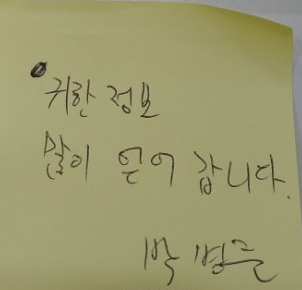 귀한 정보
많이 얻어 갑니다.
박병근